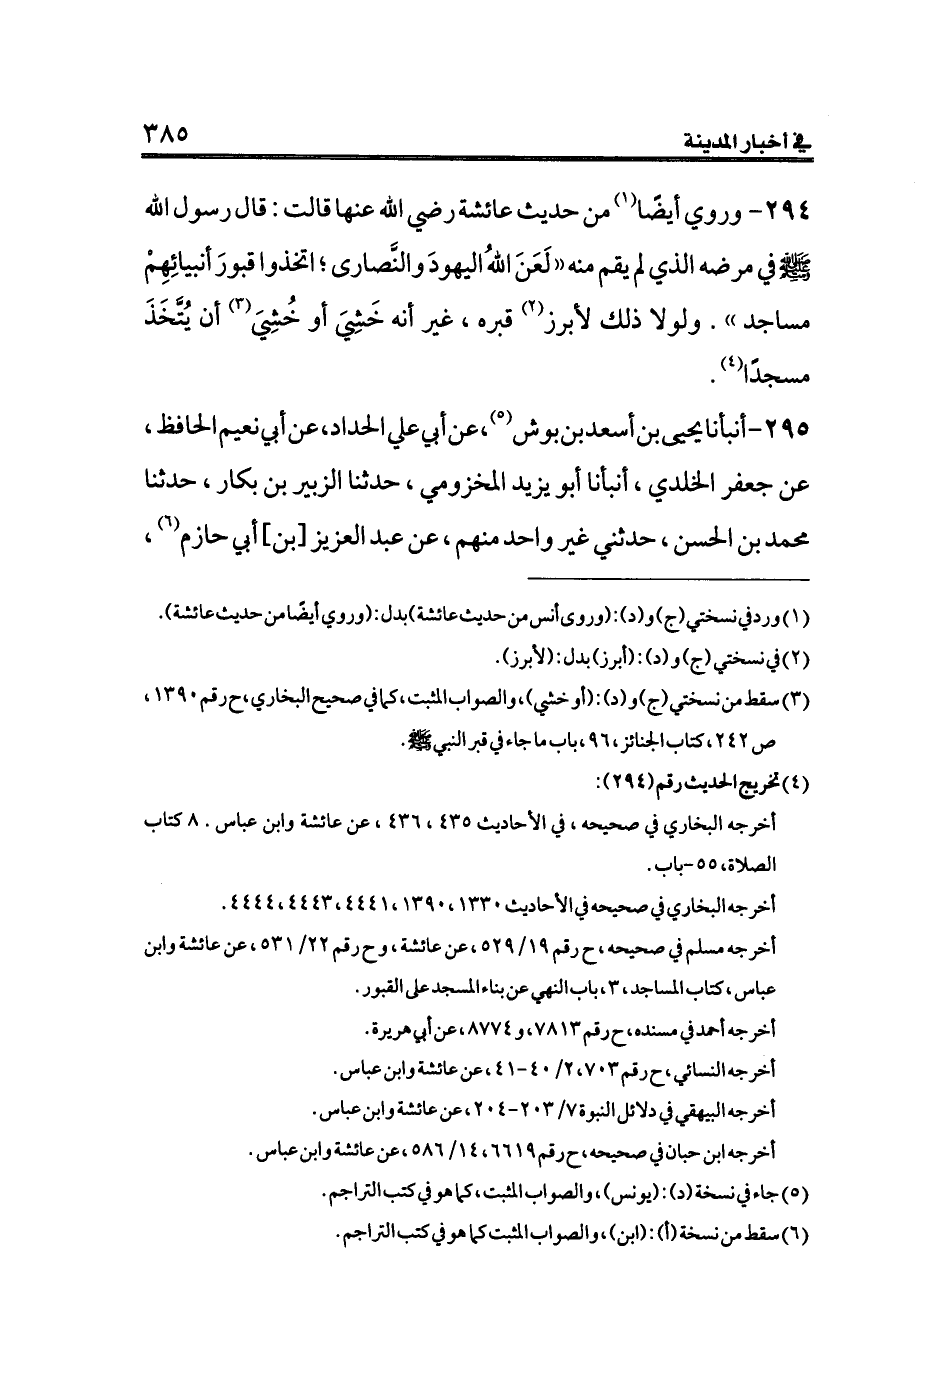 في أخبار المدينة ٣٨٥
٢٩٤- وروي أيضًا(١) من حديث عائشة رضي الله عنها قالت : قال رسول الله
ﷺ في مرضه الذي لم يقم منه «لَعَنَ اللهُ اليهودَ والنَّصارى ؛ اتخذوا قبورَ أنبيائِهِمْ
مساجد» . ولولا ذلك لأبرز(٢) قبره ، غير أنه خَشِيَ أو خُشِيَ(٣) أن يُتَّخَذَ
مسجدًا(٤) .
٢٩٥- أنبأنا يحيى بن أسعد بن بوش(٥)، عن أبي علي الحداد، عن أبي نعيم الحافظ ،
عن جعفر الخلدي ، أنبأنا أبو يزيد المخزومي ، حدثنا الزبير بن بكار ، حدثنا
محمد بن الحسن ، حدثني غير واحد منهم ، عن عبد العزيز [بن] أبي حازم(٦) ،
(١) ورد في نسختي (ج) و(د): (وروى أنس من حديث عائشة) بدل: (وروي أيضًا من حديث عائشة).
(٢) في نسختي (ج) و(د): (أبرز) بدل: (لأبرز).
(٣) سقط من نسختي (ج) و(د): (أو خشي)، والصواب المثبت، كما في صحيح البخاري، ح رقم ١٣٩٠،
ص ٢٤٢، كتاب الجنائز، ٩٦، باب ما جاء في قبر النبي ﷺ.
(٤) تخريج الحديث رقم (٢٩٤):
أخرجه البخاري في صحيحه ، في الأحاديث ٤٣٥ ، ٤٣٦ ، عن عائشة وابن عباس . ٨ كتاب
الصلاة، ٥٥-باب.
أخرجه البخاري في صحيحه في الأحاديث ١٣٣٠، ١٣٩٠، ٤٤٤١، ٤٤٤٣، ٤٤٤٤.
أخرجه مسلم في صحيحه، ح رقم ١٩/ ٥٢٩، عن عائشة، وح رقم ٢٢/ ٥٣١، عن عائشة وابن
عباس، كتاب المساجد، ٣، باب النهي عن بناء المسجد على القبور.
أخرجه أحمد في مسنده، ح رقم ٧٨١٣، و٨٧٧٤، عن أبي هريرة.
أخرجه النسائي، ح رقم ٧٠٣، ٢/ ٤٠-٤١، عن عائشة وابن عباس.
أخرجه البيهقي في دلائل النبوة ٧/ ٢٠٣-٢٠٤، عن عائشة وابن عباس.
أخرجه ابن حبان في صحيحه، ح رقم ٦٦١٩، ١٤/ ٥٨٦، عن عائشة وابن عباس.
(٥) جاء في نسخة (د): (يونس)، والصواب المثبت، كما هو في كتب التراجم.
(٦) سقط من نسخة (أ): (ابن)، والصواب المثبت كما هو في كتب التراجم.